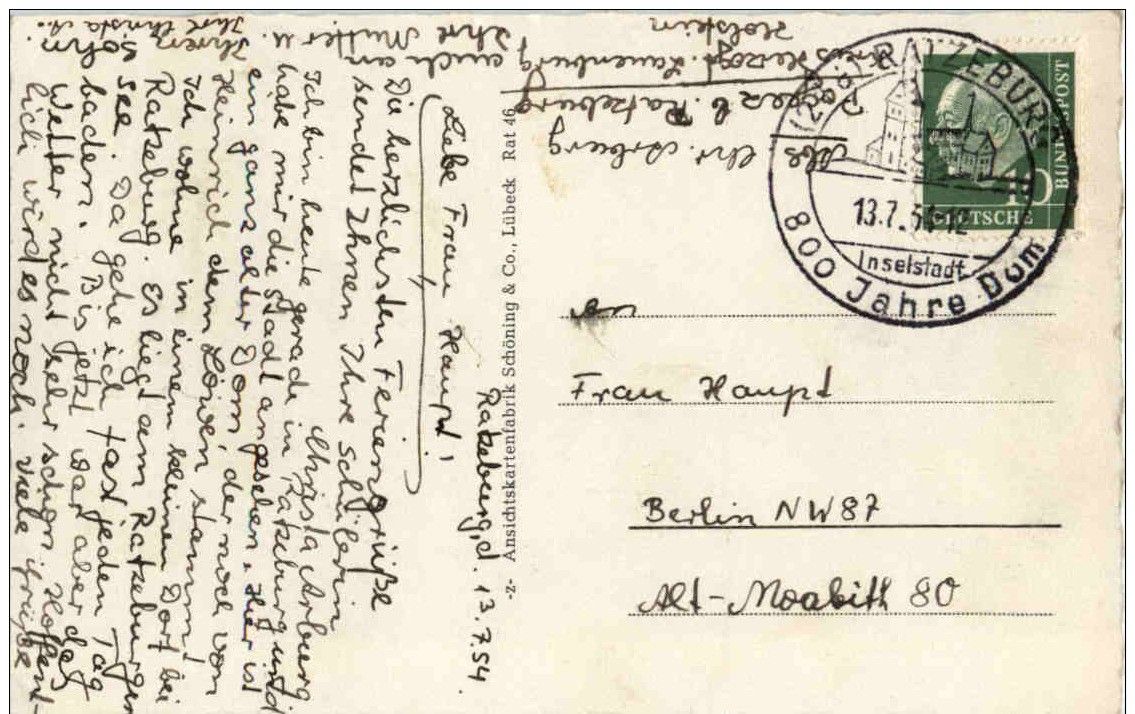 Ratzeburg, d. 13.7.54.
Liebe Frau Haupt!
Die herzlichsten Feriengrüße
sendet Ihnen Ihre Schülerin
Christa Arburg
Ich bin heute gerade in Ratzeburg und
habe mir die Stadt angesehen. Hier ist
ein ganz alter Dom, der noch von
Heinrich dem Löwen stammt.
Ich wohne in einem kleinen Dorf bei
Ratzeburg. Es liegt am Ratzeburger
See. Da gehe ich fast jeden Tag
baden. Bis jetzt war aber das
Wetter nicht sehr schön. Hoffent-
lich wird es noch. Viele Grüße
auch an
Ihre Mutter u.
Ihren
Sohn.
Ihre Christa A.
Abs. Chr. Arburg
b. Ratzeburg
Kreis Herzogt. Lauenburg
Holstein
-z- Ansichtskartenfabrik Schöning & Co., Lübeck Rat 46
RATZEBURG
13.7.54-12
Inselstadt
800 Jahre Dom
10
DEUTSCHE
BUNDESPOST
Frau Haupt
Berlin NW87
Alt-Moabith 80